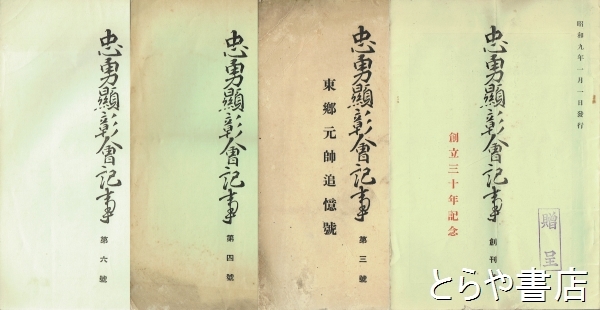 昭和九年一月一日發行
忠勇顯彰會記事
創刊
創立三十年記念
贈呈
忠勇顯彰會記事
第三號
東鄉元帥追憶號
忠勇顯彰會記事
第四號
忠勇顯彰會記事
第六號
とらや書店